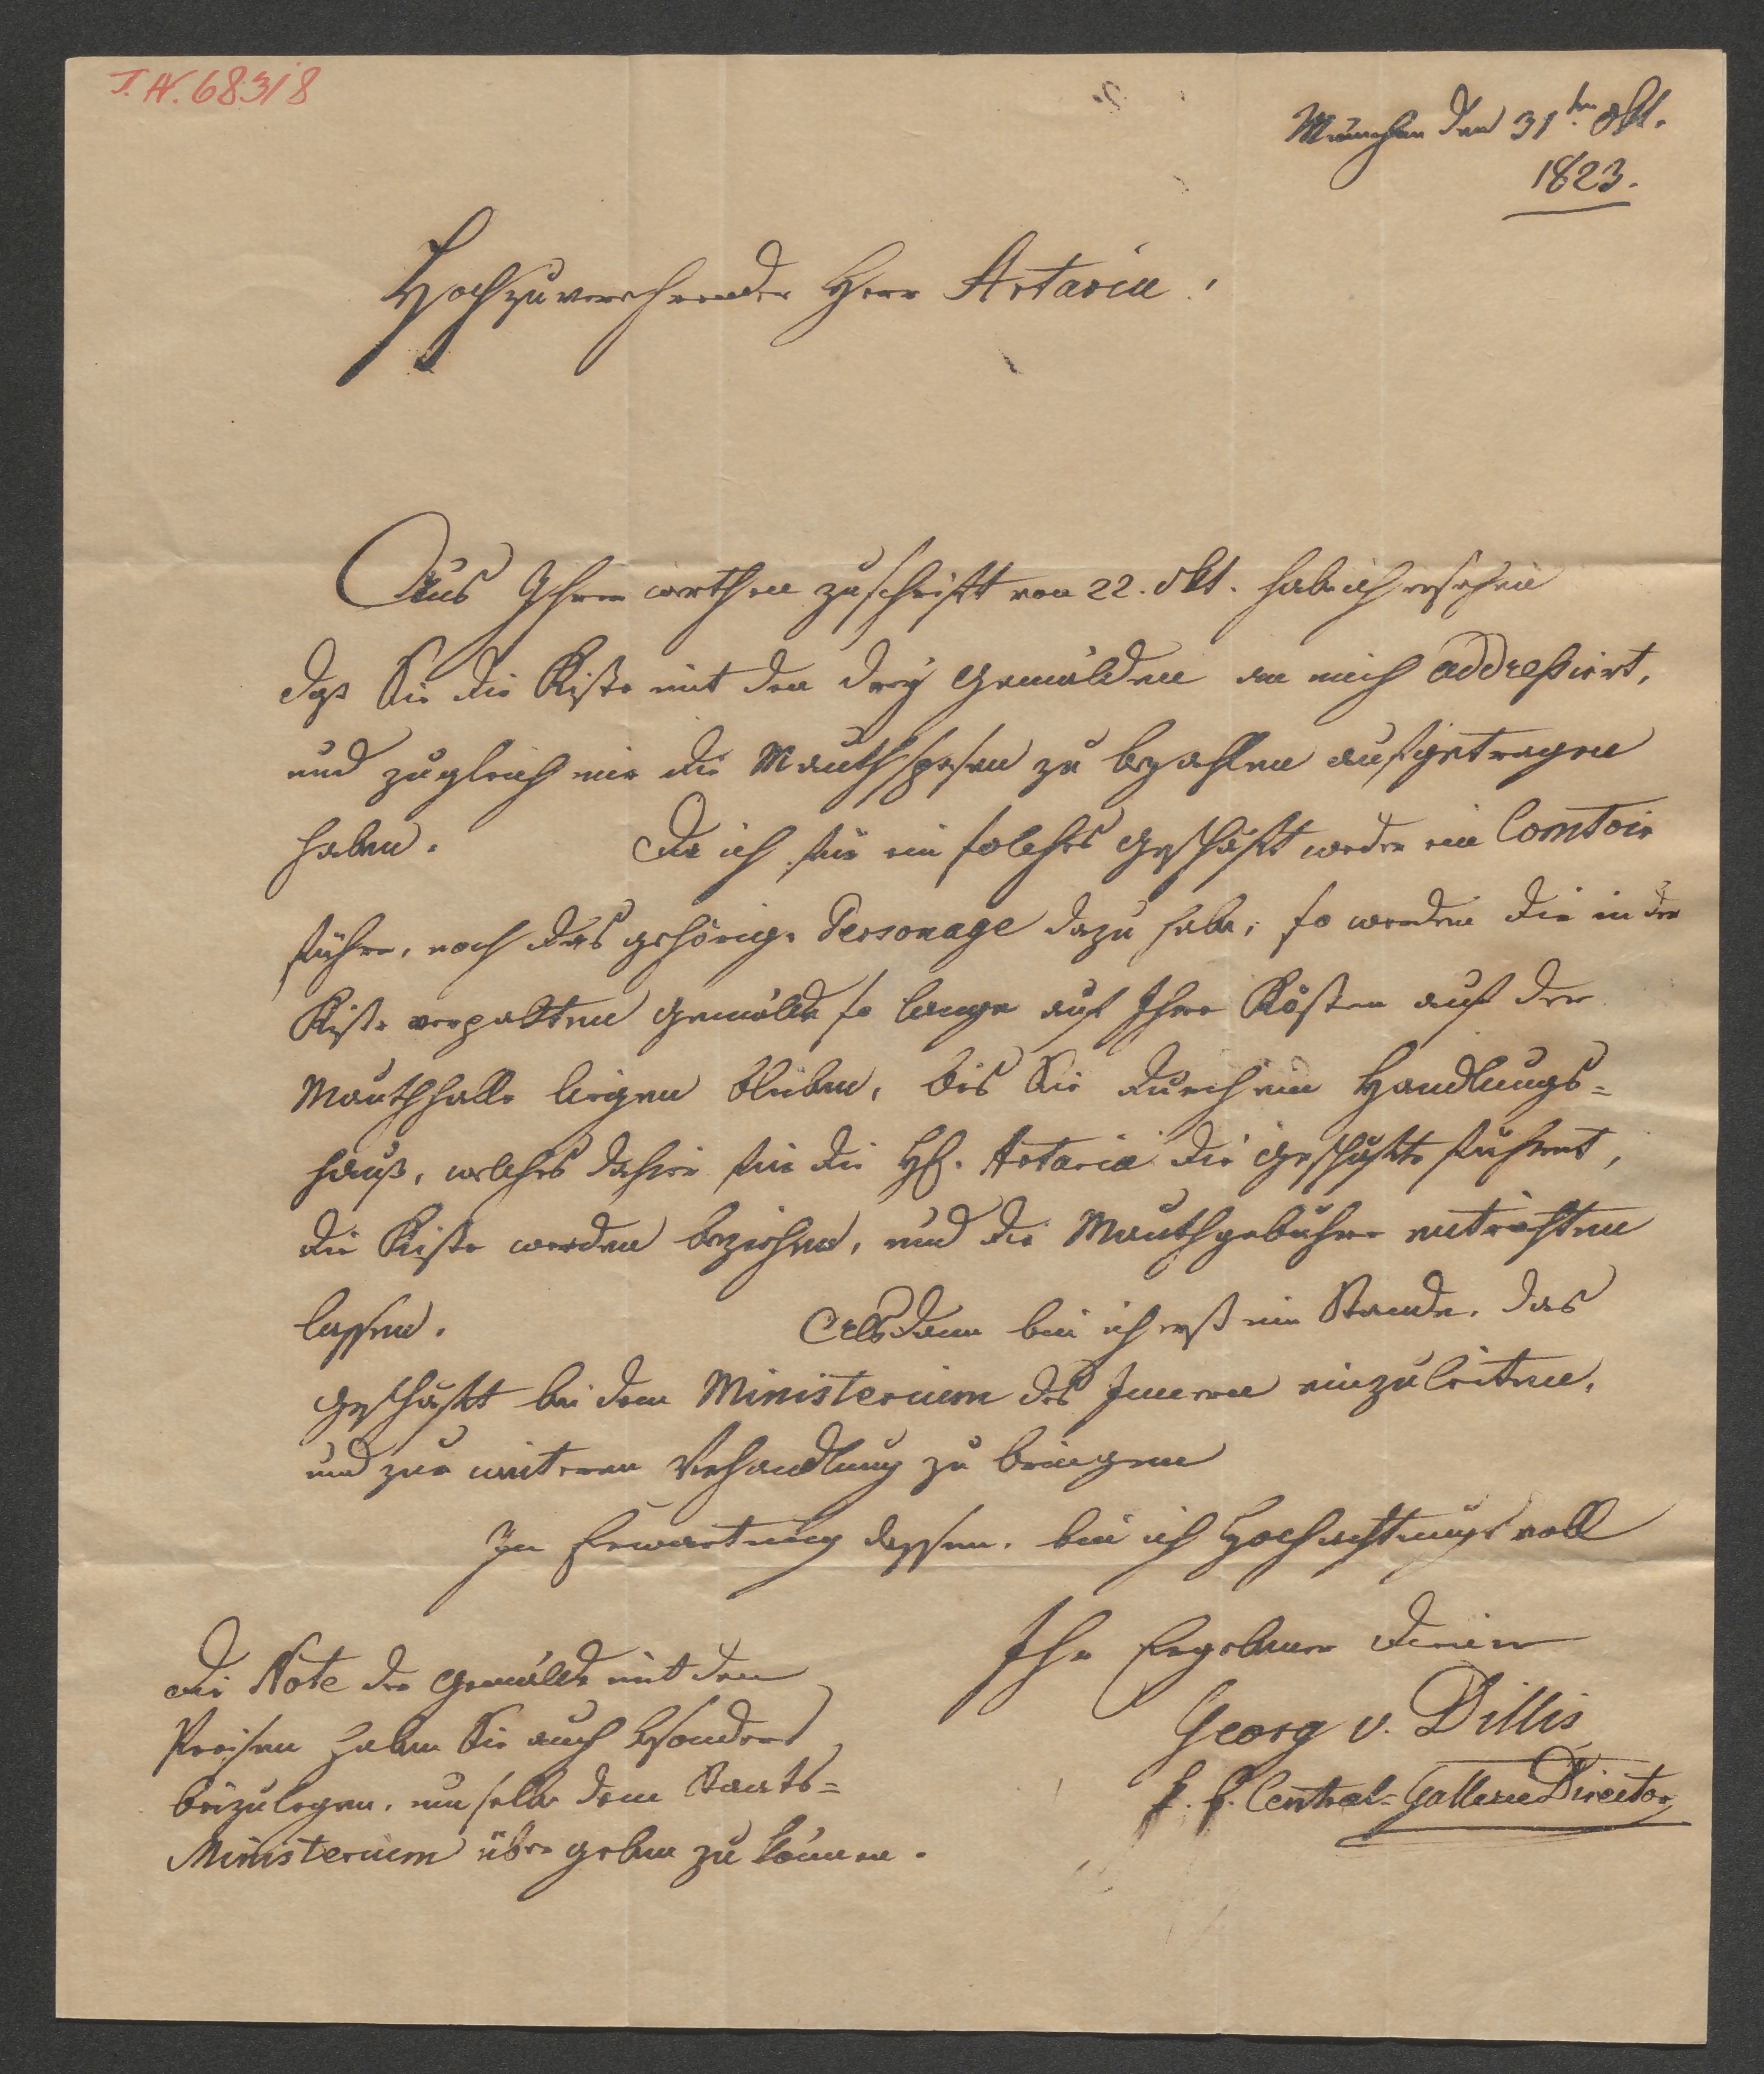 J. N. 68318
München den 31ten Okt.
1823.
Hochzuverehrender Herr Artaria!
Aus Ihrer werthen Zuschrift von 22. Okt. hab ich ersehen
daß Sie die Kiste mit den drey Gemälden an mich addreßirt,
und zugleich mir die Mauthspesen zu bezahlen aufgetragen
haben. Da ich für ein solches Geschäft weder ein Comtoir
führe, noch das gehörige Personage dazu habe, so werden die in der
Kiste verpakten Gemälde so lange auf Ihre Kösten auf der
Mauthhalle liegen bleiben, bis Sie durch ein Handlungs=
hauß, welches dahier für die HH. Artaria die Geschäfte führet,
die Kiste werden beziehen, und die Mauthgebühren entrichten
lassen. Alsdann bin ich erst im Stande, das
Geschäft bei dem Ministerium des Inneren einzuleiten,
und zur weiteren Verhandlung zu bringen
In Erwartung dessen, bin ich Hochachtungsvoll
Ihr Ergebner Diener
Georg v. Dillis
k. b. Central-Gallerie Director
Die Note der Gemälde mit den
Preisen haben Sie auch besonders
beizulegen, um selbe dem Staats=
Ministerium übergeben zu können.